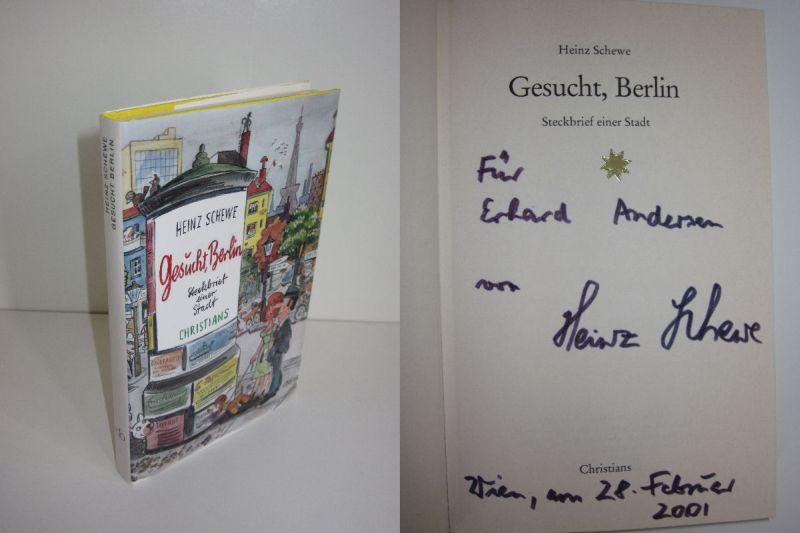 HEINZ SCHEWE
GESUCHT BERLIN
HEINZ SCHEWE
Gesucht, Berlin
Steckbrief
einer
Stadt
CHRISTIANS
Heinz Schewe
Gesucht, Berlin
Steckbrief einer Stadt
Für
Erhard Andersen
von
Heinz Schewe
Christians
Wien, am 28. Februar
2001